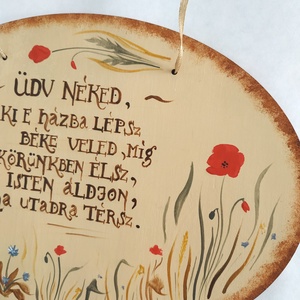 ÜDV NÉKED,
KI E HÁZBA LÉPSZ,
BÉKE VELED, MÍG
KÖRÜNKBEN ÉLSZ,
ISTEN ÁLDJON,
HA UTADRA TÉRSZ.